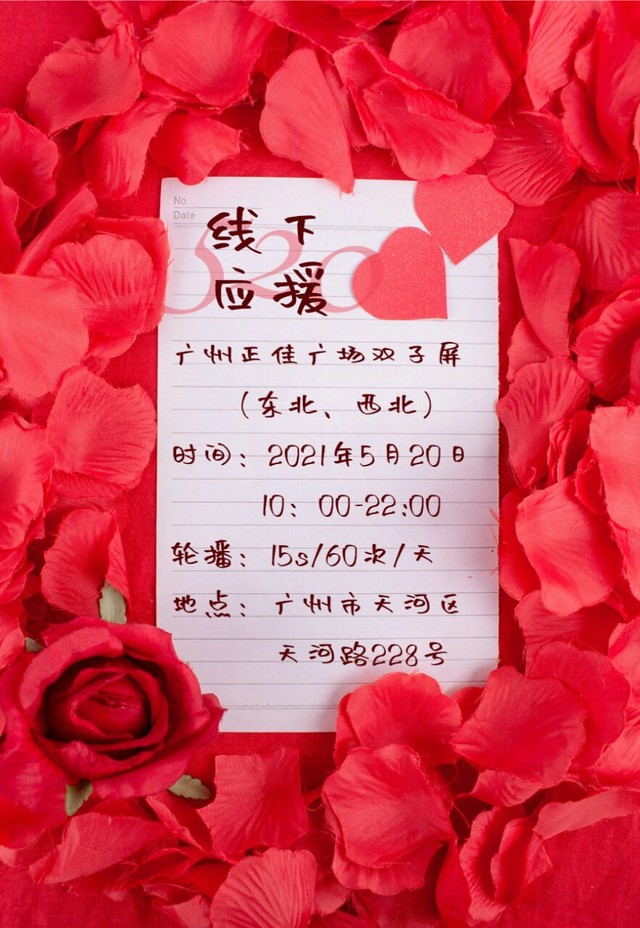 No
Date
520
线下
应援
广州正佳广场双子屏
（东北、西北）
时间：2021年5月20日
10：00-22:00
轮播：15s/60次/天
地点：广州市天河区
天河路228号